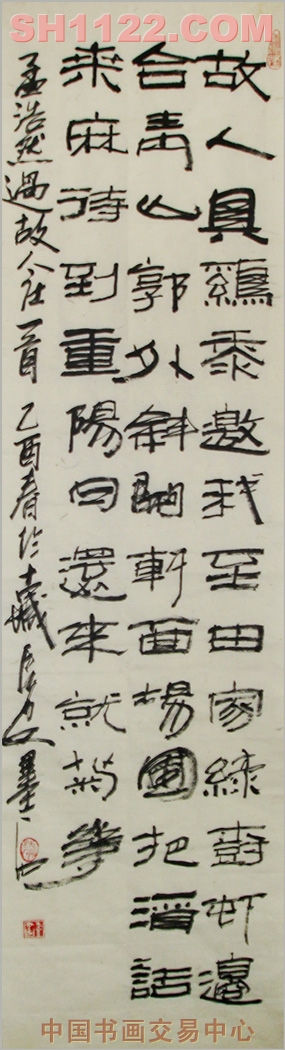 SH1122.COM
故人具鷄黍邀我至田家綠樹邨邊
合青山郭外斜開軒面場圃把酒話
桑麻待到重陽日還來就菊華
孟浩然過故人庄一首 乙酉春於
中国书画交易中心